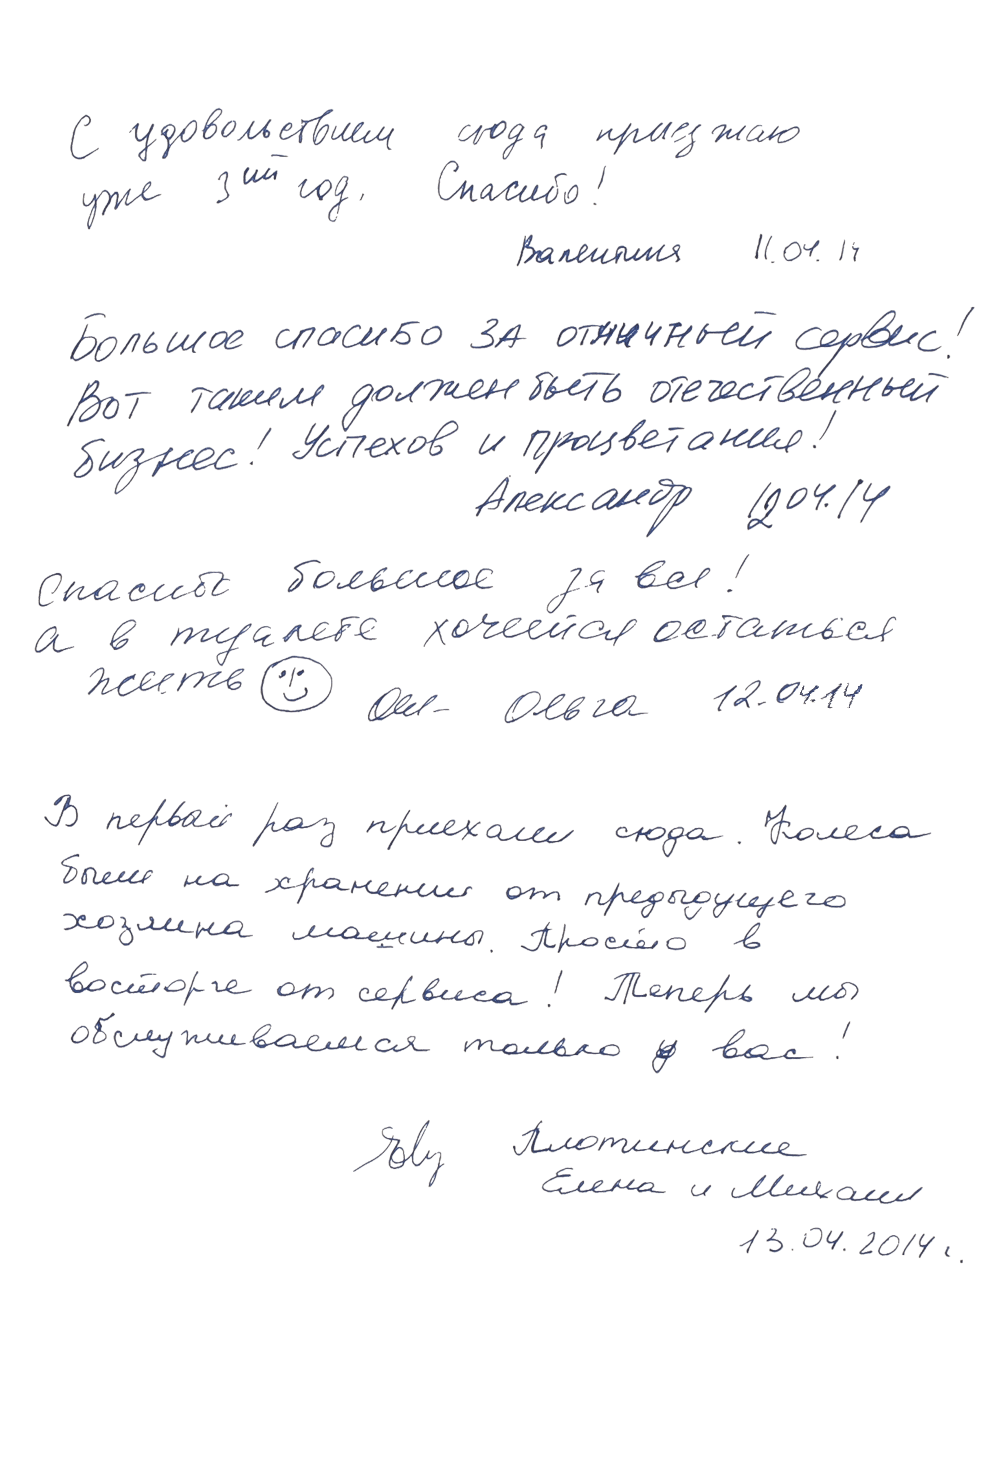 С удовольствием сюда приезжаю
уже 3ий год. Спасибо!
Валентина 11.04.14
Большое спасибо за отличный сервис!
Вот таким должен быть отечественный
бизнес! Успехов и процветания!
Александр 12.04.14
Спасибо большое за все!
а в туалете хочется остаться
жить
Ольга 12.04.14
В первый раз приехали сюда. Колеса
были на хранении от предыдущего
хозяина машины. Просто в
восторге от сервиса! Теперь мы
обслуживаемся только у вас!
Плотинские
Елена и Михаил
13.04.2014 г.